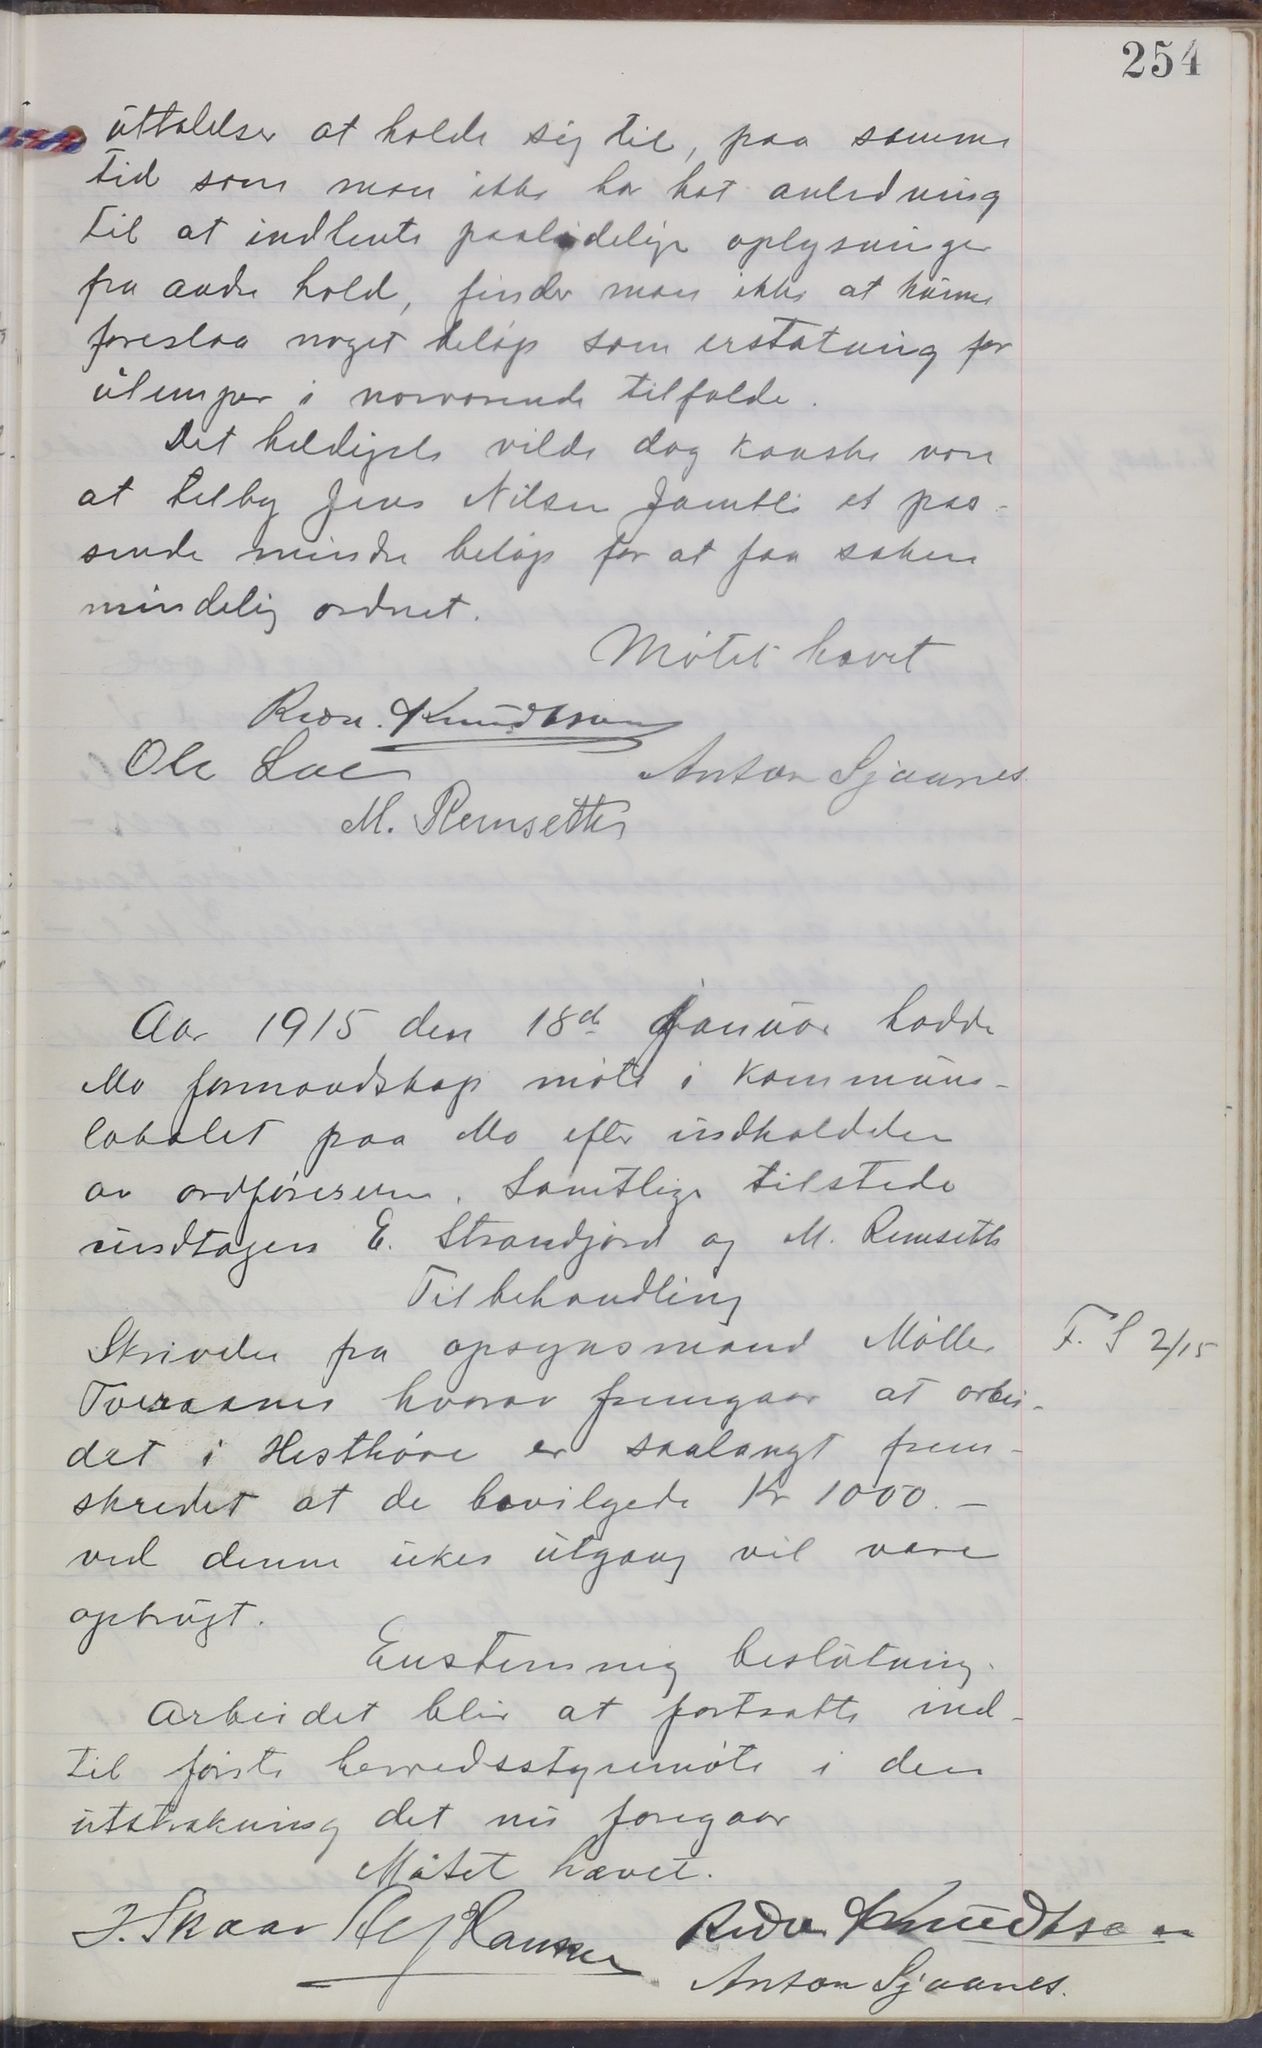 254
uttalelser at holde sig til, paa samme
tid som man ikke har hat anledning
til at indhente paalidelige oplysninger
fra andre hold, finder man ikke at kunne
foreslaa noget beløp som erstatning for
ulemper i nærværende tilfælde.
Det heldigste vilde dog kanske være
at tilby Jens Nilsen Jamtli et pas-
sende mindre beløp for at faa saken
mindelig ordnet.
Møtet hævet
Knudtsen
Ole Anton Sjaanes
M. Remseth
Aar 1915 den 18de Januar hadde
Mo formandskap møte i kommune-
lokalet paa Mo efter indkaldelse
av ordføreren. Samtlige tilstede
undtagen E. Strandjord og M. Remseth
Til behandling
Skrivelse fra opsynsmand Møller F. S 2/15
Tveraanes hvorav fremgaar at arbei-
det i Hesthøre er saalangt frem-
skredet at de bevilgede Kr 1000.-
ved denne ukes utgang vil være
opbrugt.
Enstemmig beslutning.
Arbeidet blir at fortsætte ind-
til første herredsstyremøte i den
utstrækning det nu foregaar
Møtet hævet.
J. Skaar Hanssen Knudtsen
Anton Sjaanes.